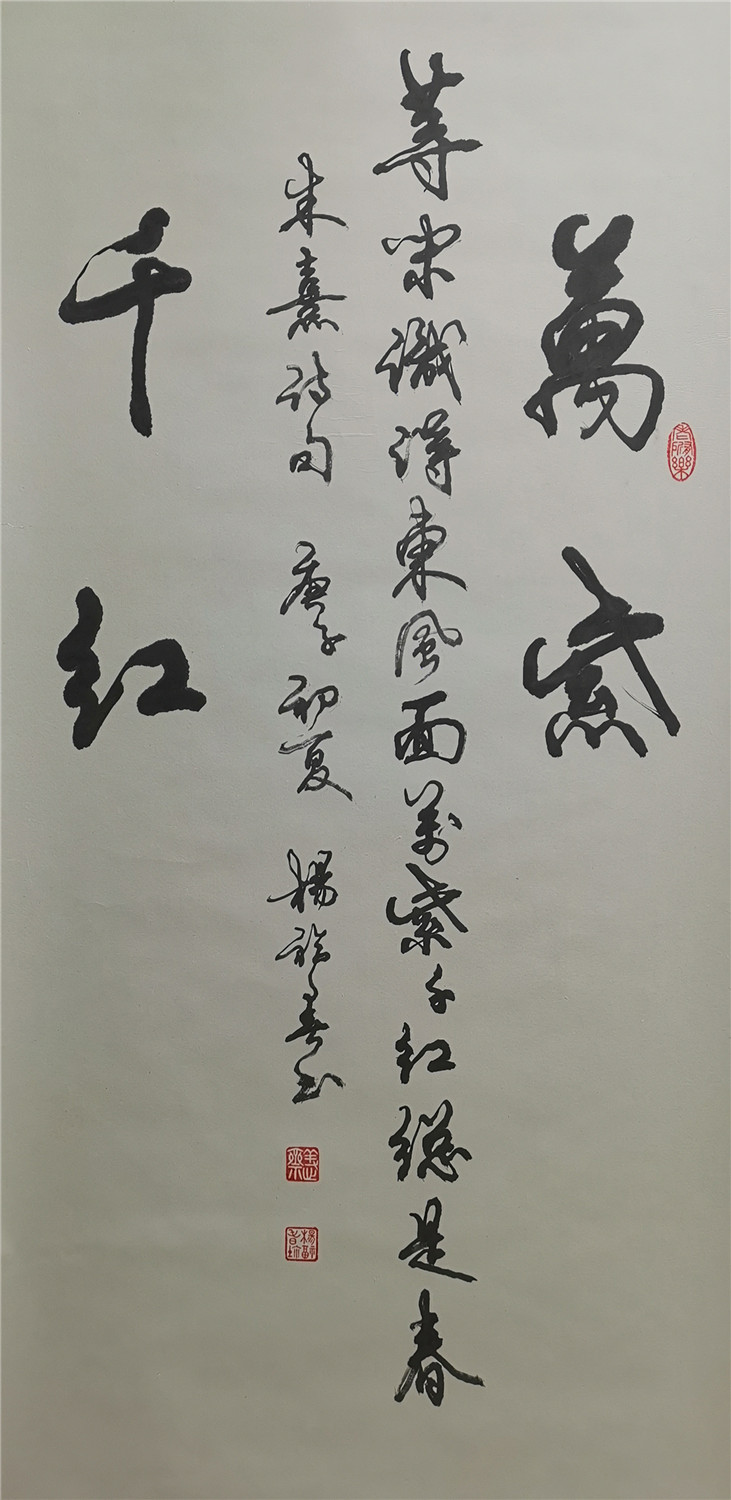 萬紫
千紅
等閑識得東風面萬紫千紅總是春
朱熹詩句 庚子初夏 楊善書